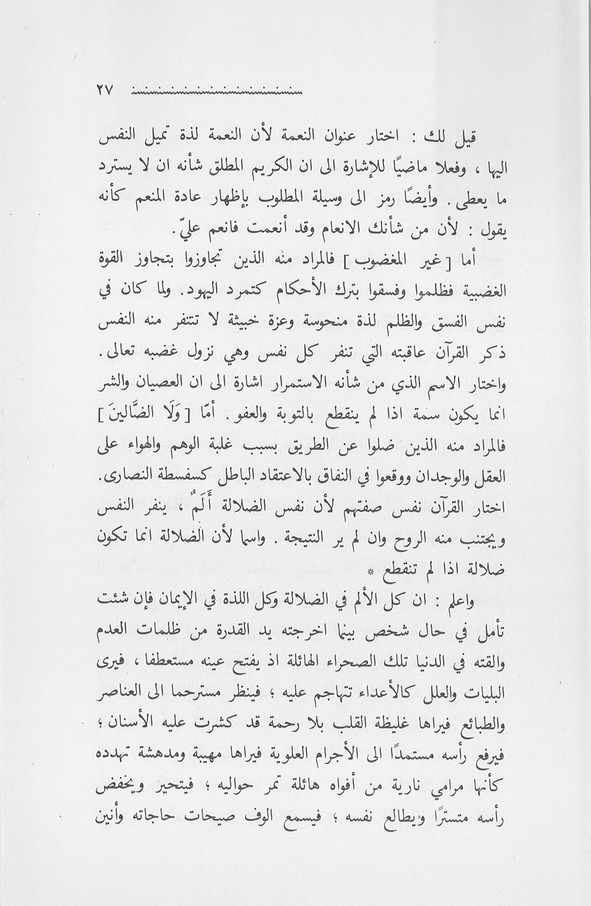 ٢٧
قيل لك : اختار عنوان النعمة لأن النعمة لذة تميل النفس
اليها ، وفعلا ماضيًا للإشارة الى ان الكريم المطلق شأنه ان لا يسترد
ما يعطى . وأيضًا رمز الى وسيلة المطلوب بإظهار عادة المنعم كأنه
يقول : لأن من شأنك الانعام وقد أنعمت فانعم عليّ .
أما [ غير المغضوب ] فالمراد منه الذين تجاوزوا بتجاوز القوة
الغضبية فظلموا وفسقوا بترك الأحكام كتمرد اليهود. ولما كان في
نفس الفسق والظلم لذة منحوسة وعزة خبيثة لا تتنفر منه النفس
ذكر القرآن عاقبته التي تنفر كل نفس وهي نزول غضبه تعالى .
واختار الاسم الذي من شأنه الاستمرار اشارة الى ان العصيان والشر
انما يكون سمة اذا لم ينقطع بالتوبة والعفو . أمّا [ وَلَا الضَّالينَ ]
فالمراد منه الذين ضلوا عن الطريق بسبب غلبة الوهم والهواء على
العقل والوجدان ووقعوا في النفاق بالاعتقاد الباطل كسفسطة النصارى.
اختار القرآن نفس صفتهم لأن نفس الضلالة أَلَمٌ ، ينفر النفس
ويجتنب منه الروح وان لم ير النتيجة . واسما لأن الضلالة انما تكون
ضلالة اذا لم تنقطع *
واعلم : ان كل الألم في الضلالة وكل اللذة في الإيمان فإن شئت
تأمل في حال شخص بينما اخرجته يد القدرة من ظلمات العدم
والقته في الدنيا تلك الصحراء الهائلة اذ يفتح عينه مستعطفا ، فيرى
البليات والعلل كالأعداء تتهاجم عليه ؛ فينظر مسترحما الى العناصر
والطبائع فيراها غليظة القلب بلا رحمة قد كشرت عليه الأسنان ؛
فيرفع رأسه مستمدًا الى الأجرام العلوية فيراها مهيبة ومدهشة تهدده
كأنها مرامي نارية من أفواه هائلة تمر حواليه ؛ فيتحير ويخفض
رأسه متسترًا ويطالع نفسه ؛ فيسمع الوف صيحات حاجاته وأنين